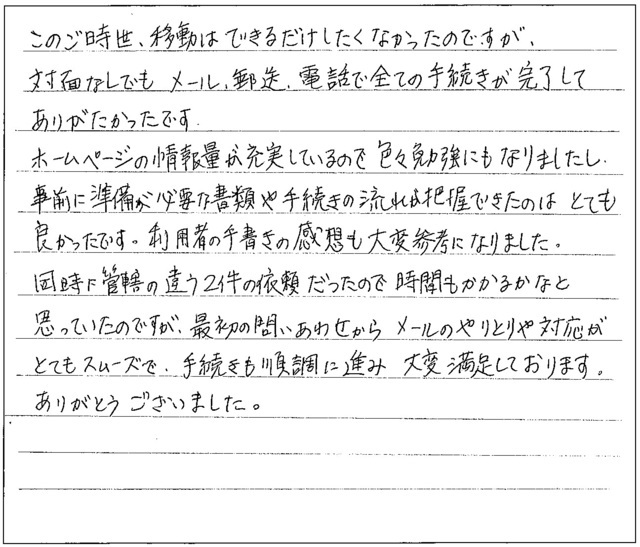 このご時世、移動はできるだけしたくなかったのですが、
対面なしでも メール、郵送、電話で全ての手続きが完了して
ありがたかったです.
ホームページの情報量が充実しているので 色々勉強にもなりましたし.
事前に準備が必要な書類や手続きの流れが把握できたのは とても
良かったです。利用者の手書きの感想も大変参考になりました。
同時に管轄の違う2件の依頼だったので時間もかかるかなと
思っていたのですが、最初の問いあわせから メールのやりとりや対応が
とてもスムーズで、手続きも順調に進み 大変満足しております。
ありがとうございました。